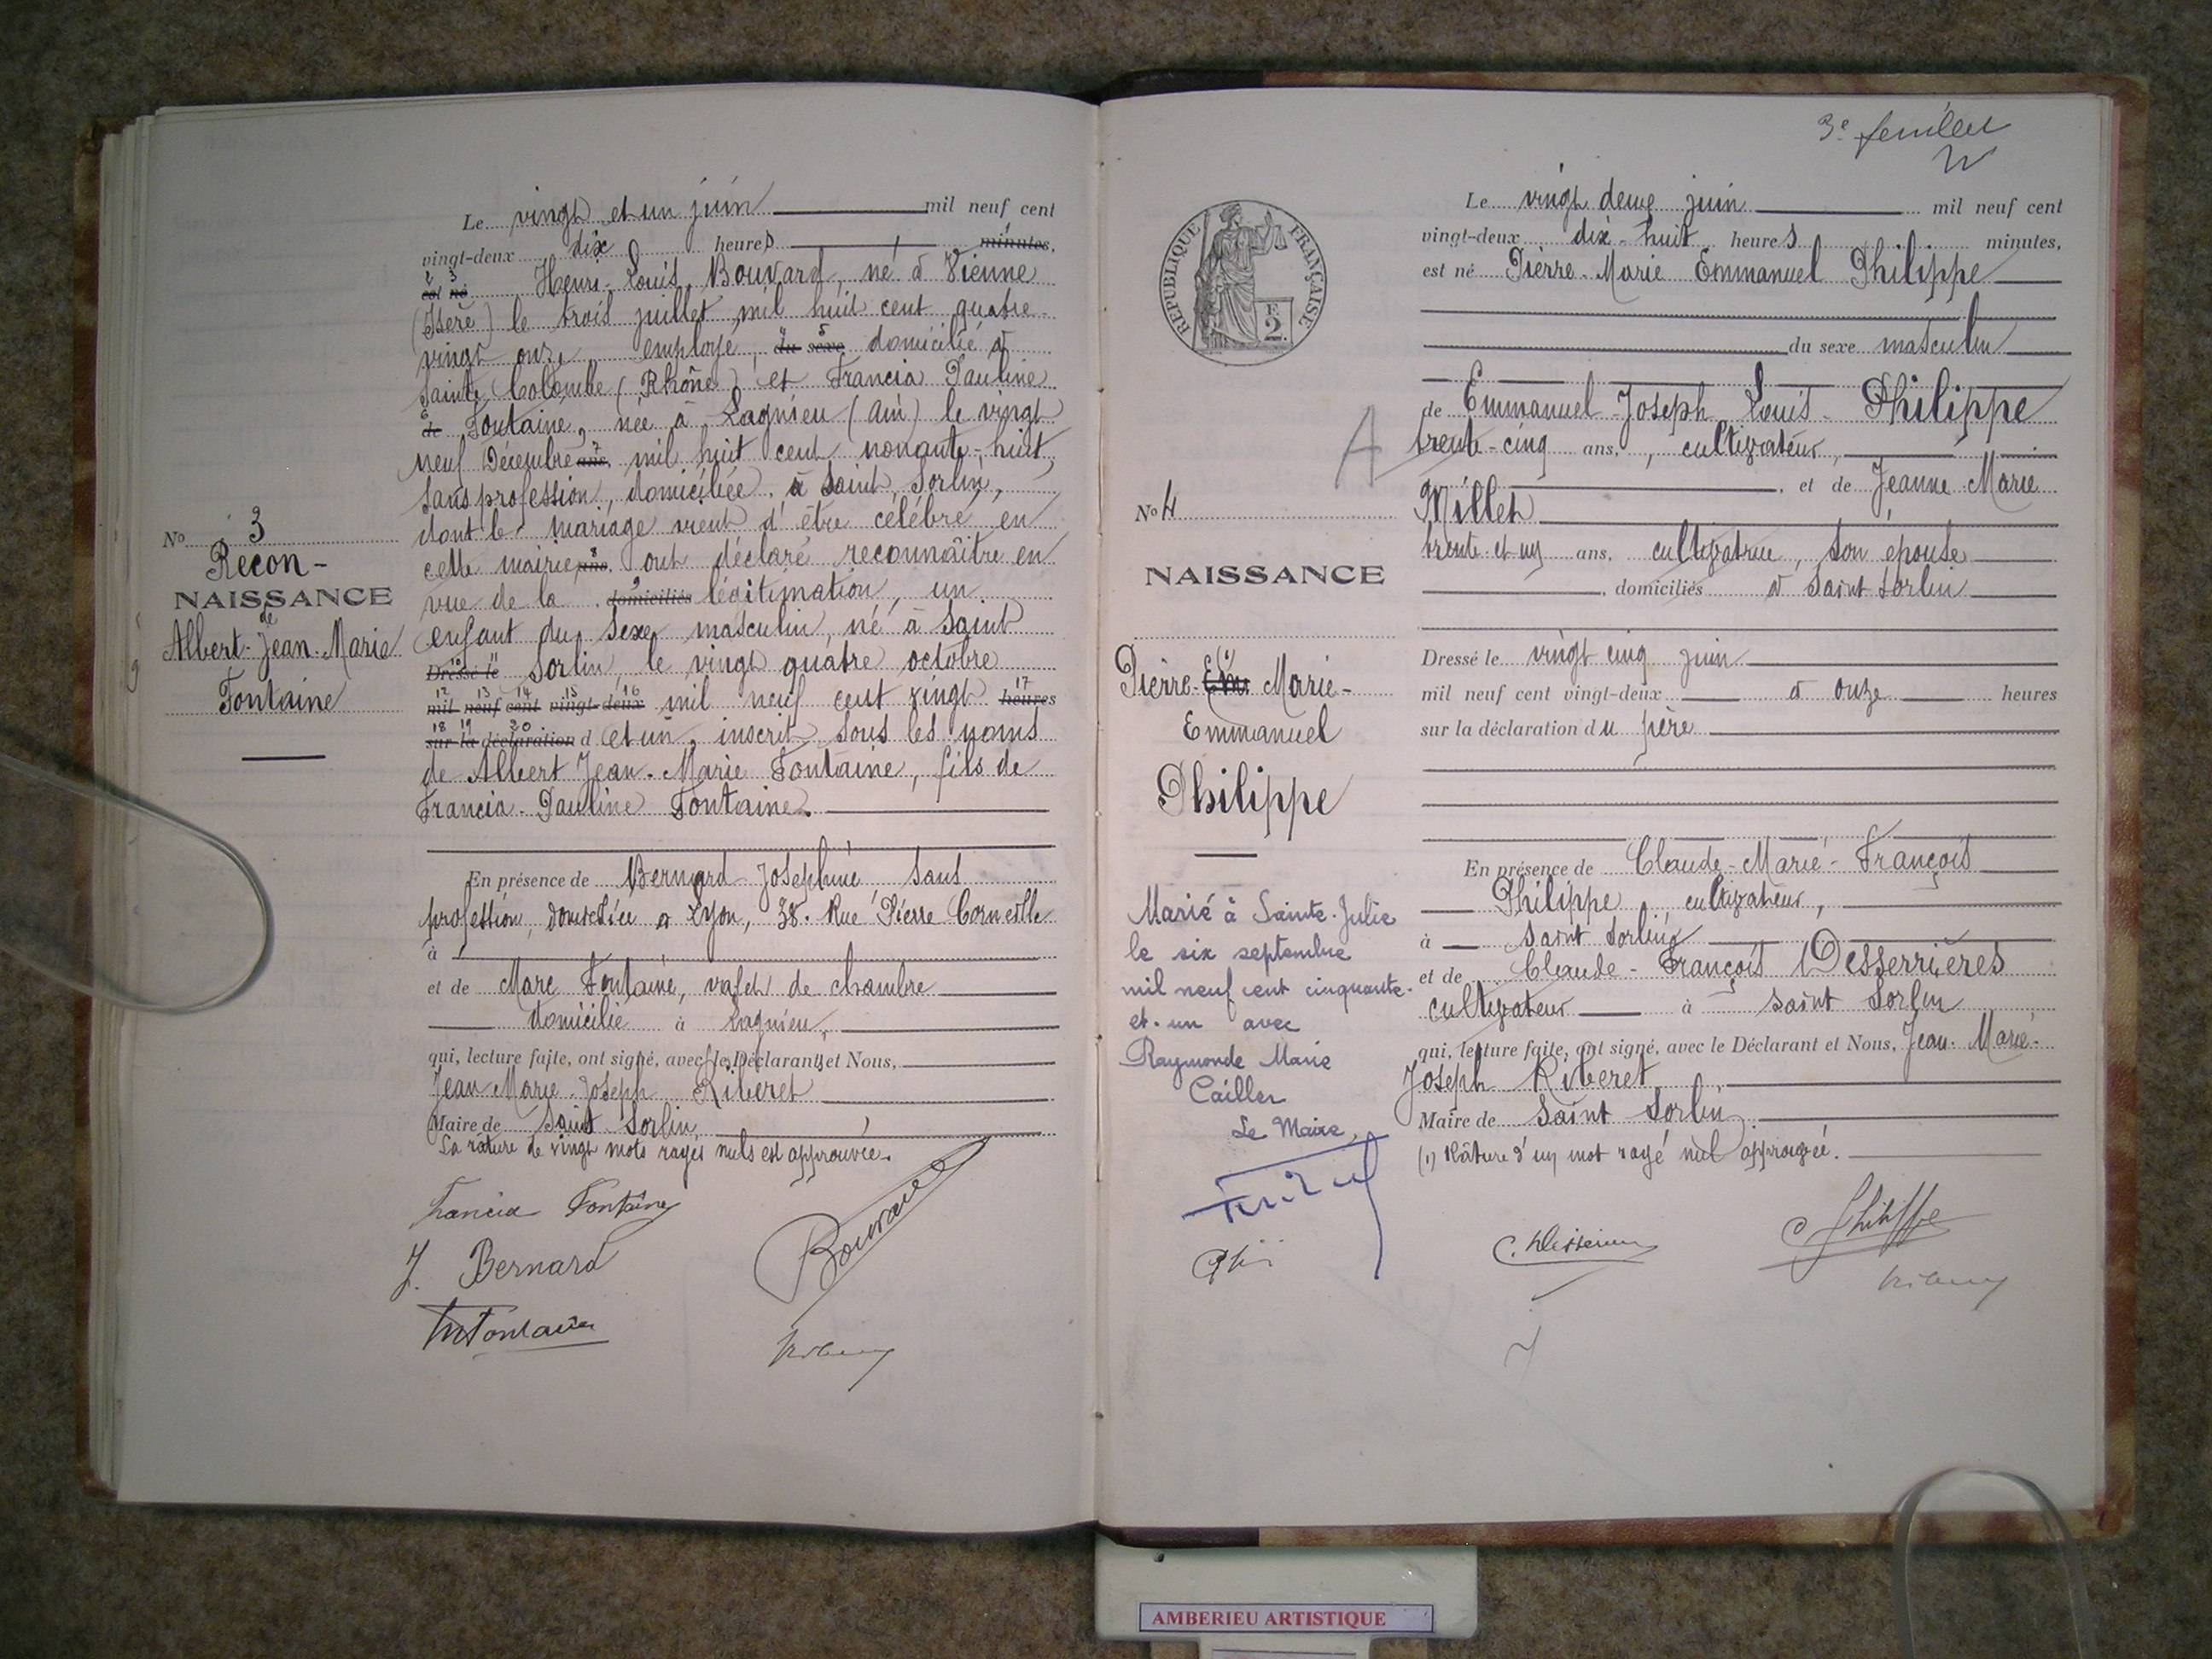 Le vingt et un juin mil neuf cent
vingt-deux dix heures minutes,
2 3
est né Henri-Louis Bouvard, né à Vienne
(Isère) le trois juillet mil huit cent quatre-
vingt onze employé, du sexe domicilié à
4 5
Sainte Colombe (Rhône) et Francia Pauline
6
de Fontaine, née à Lagnieu (Ain) le vingt
neuf Décembre ans, mil huit cent nonante-huit,
7
sans profession, domiciliée à Saint Sorlin,
dont le mariage vient d'être célébré en
cette mairie ans, ont déclaré reconnaître en
8
vue de la domiciliés légitimation, un
9
enfant du sexe masculin, né à Saint
Dressé le Sorlin, le vingt quatre octobre
10 11
12 13 14 15 16 17
mil neuf cent vingt-deux mil neuf cent vingt heures
18 19 20
sur la déclaration d et un, inscrit sous les noms
de Albert Jean-Marie Fontaine, fils de
Francia-Pauline Fontaine.
En présence de Bernard Joséphine sans
profession, domiciliée à Lyon, 38. Rue Pierre Corneille
à
et de Marc Fontaine, valet de chambre
domicilié à Lagnieu,
qui, lecture faite, ont signé, avec les Déclarants et Nous,
Jean-Marie-Joseph Riberet
Maire de Saint Sorlin
La rature de vingt mots rayés nuls est approuvée.
Francia Fontaine
Bouvard
J. Bernard
M Fontaine
No 3
Recon-
NAISSANCE
de
Albert-Jean-Marie
Fontaine
3e feuillet
REPUBLIQUE FRANÇAISE
F.
2.
Le vingt deux juin mil neuf cent
vingt-deux dix-huit heures minutes,
est né Pierre-Marie Emmanuel Philippe
du sexe masculin
de Emmanuel-Joseph Louis-Philippe
trente-cinq ans, cultivateur,
, et de Jeanne Marie
Millet
trente et un ans, cultivatrice, son épouse
, domiciliés à Saint Sorlin
Dressé le vingt cinq juin
mil neuf cent vingt-deux à onze heures
sur la déclaration du père
En présence de Claude-Marie-François
Philippe, cultivateur,
à Saint Sorlin
et de Claude-François Desserrières
cultivateur à Saint Sorlin
qui, lecture faite, ont signé, avec le Déclarant et Nous, Jean-Marie-
Joseph Riberet
Maire de Saint Sorlin
(1) Râture d'un mot rayé nul approuvée.
A
No 4
NAISSANCE
(1)
Pierre-Em Marie-
Emmanuel
Philippe
Marié à Sainte-Julie
le six septembre
mil neuf cent cinquante-
et-un avec
Raymonde Marie
Cailler
Le Maire,
AMBERIEU ARTISTIQUE